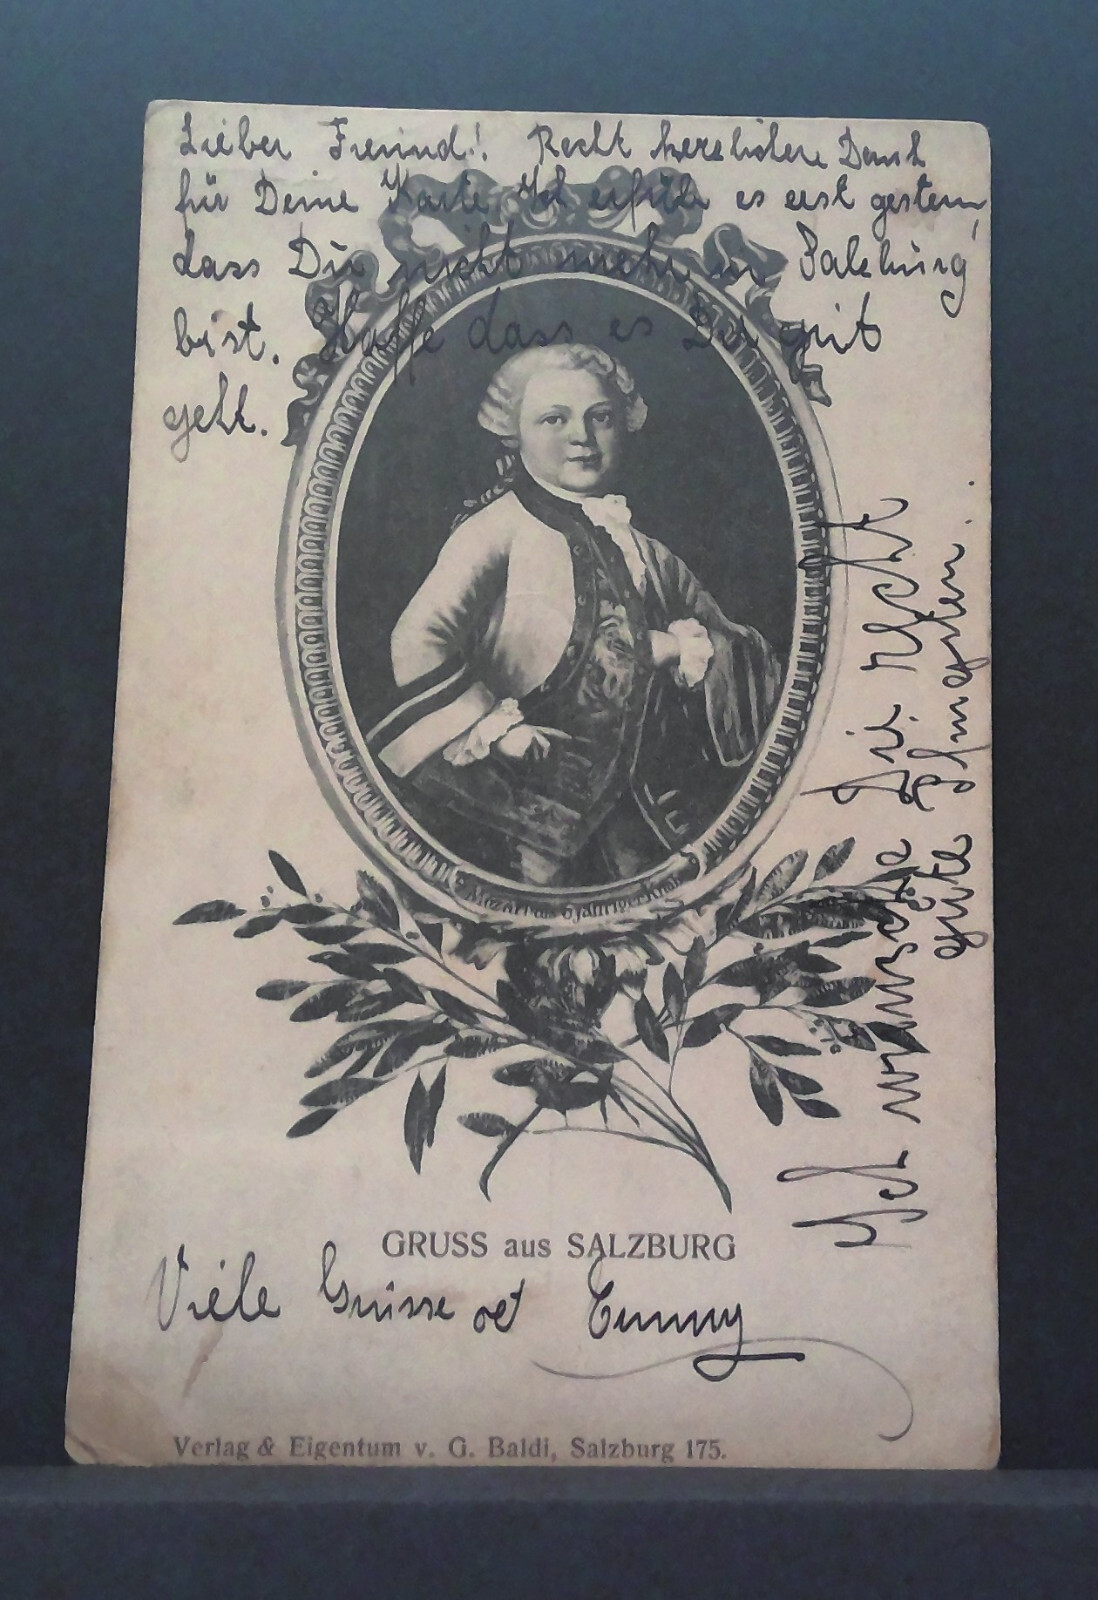 Lieber Freund! Recht herzlichen Dank
für Deine Karte Ich erfuhr es erst gestern,
dass Du nicht mehr in Salzburg
bist. Hoffe dass es Dir gut
geht.
Ich wünsche Dir recht
gute Pfingsten.
Mozart als 6 jähriger Knabe
GRUSS aus SALZBURG
Viele Grüsse Emmy
Verlag & Eigentum v. G. Baldi, Salzburg 175.